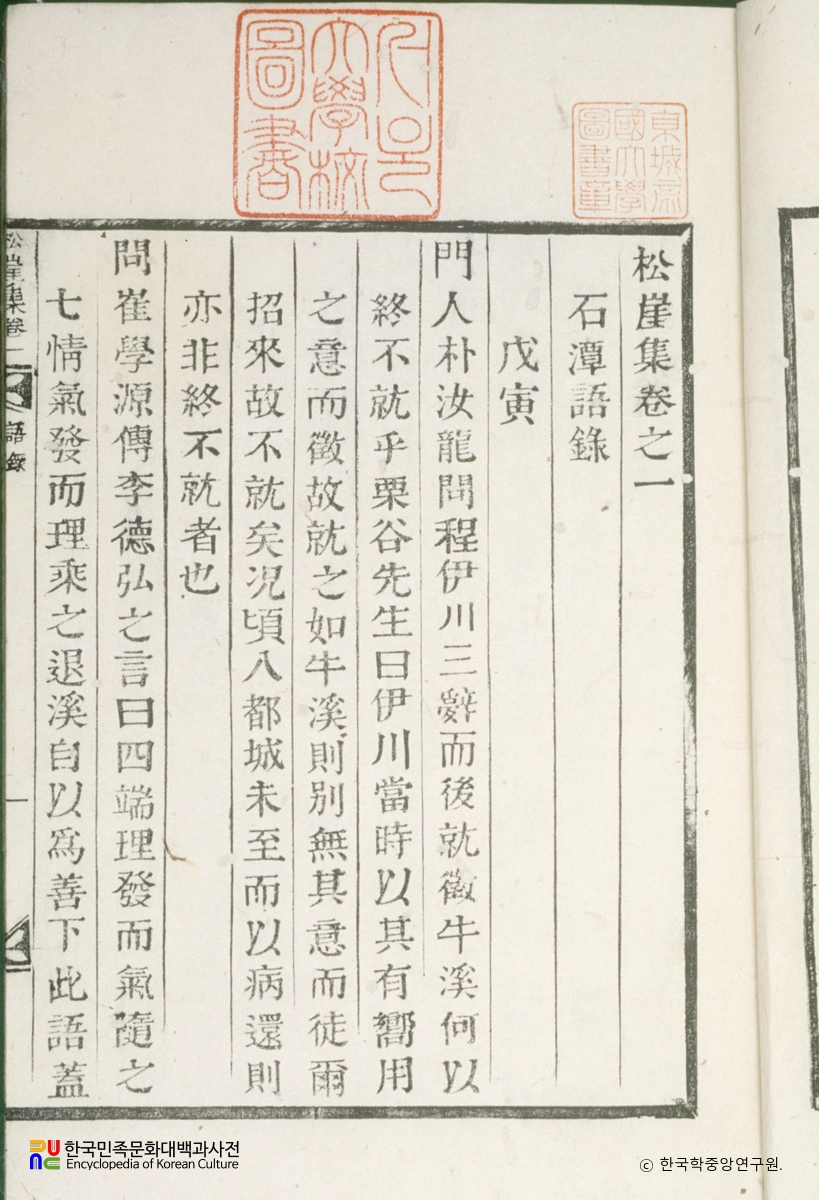 松崖集卷之一
石潭語錄
戊寅
門人朴汝龍問程伊川三辭而後就徵牛溪何以
終不就乎栗谷先生曰伊川當時以其有嚮用
之意而徵故就之如牛溪則別無其意而徒爾
招來故不就矣况頃入都城未至而以病還則
亦非終不就者也
問崔學源傳李德弘之言曰四端理發而氣隨之
七情氣發而理乘之退溪自以爲善下此語蓋
松崖集卷一
語錄
一
東城帝
國大學
圖書章
大學校
圖書
한국민족문화대백과사전
Encyclopedia of Korean Culture
ⓒ 한국학중앙연구원.